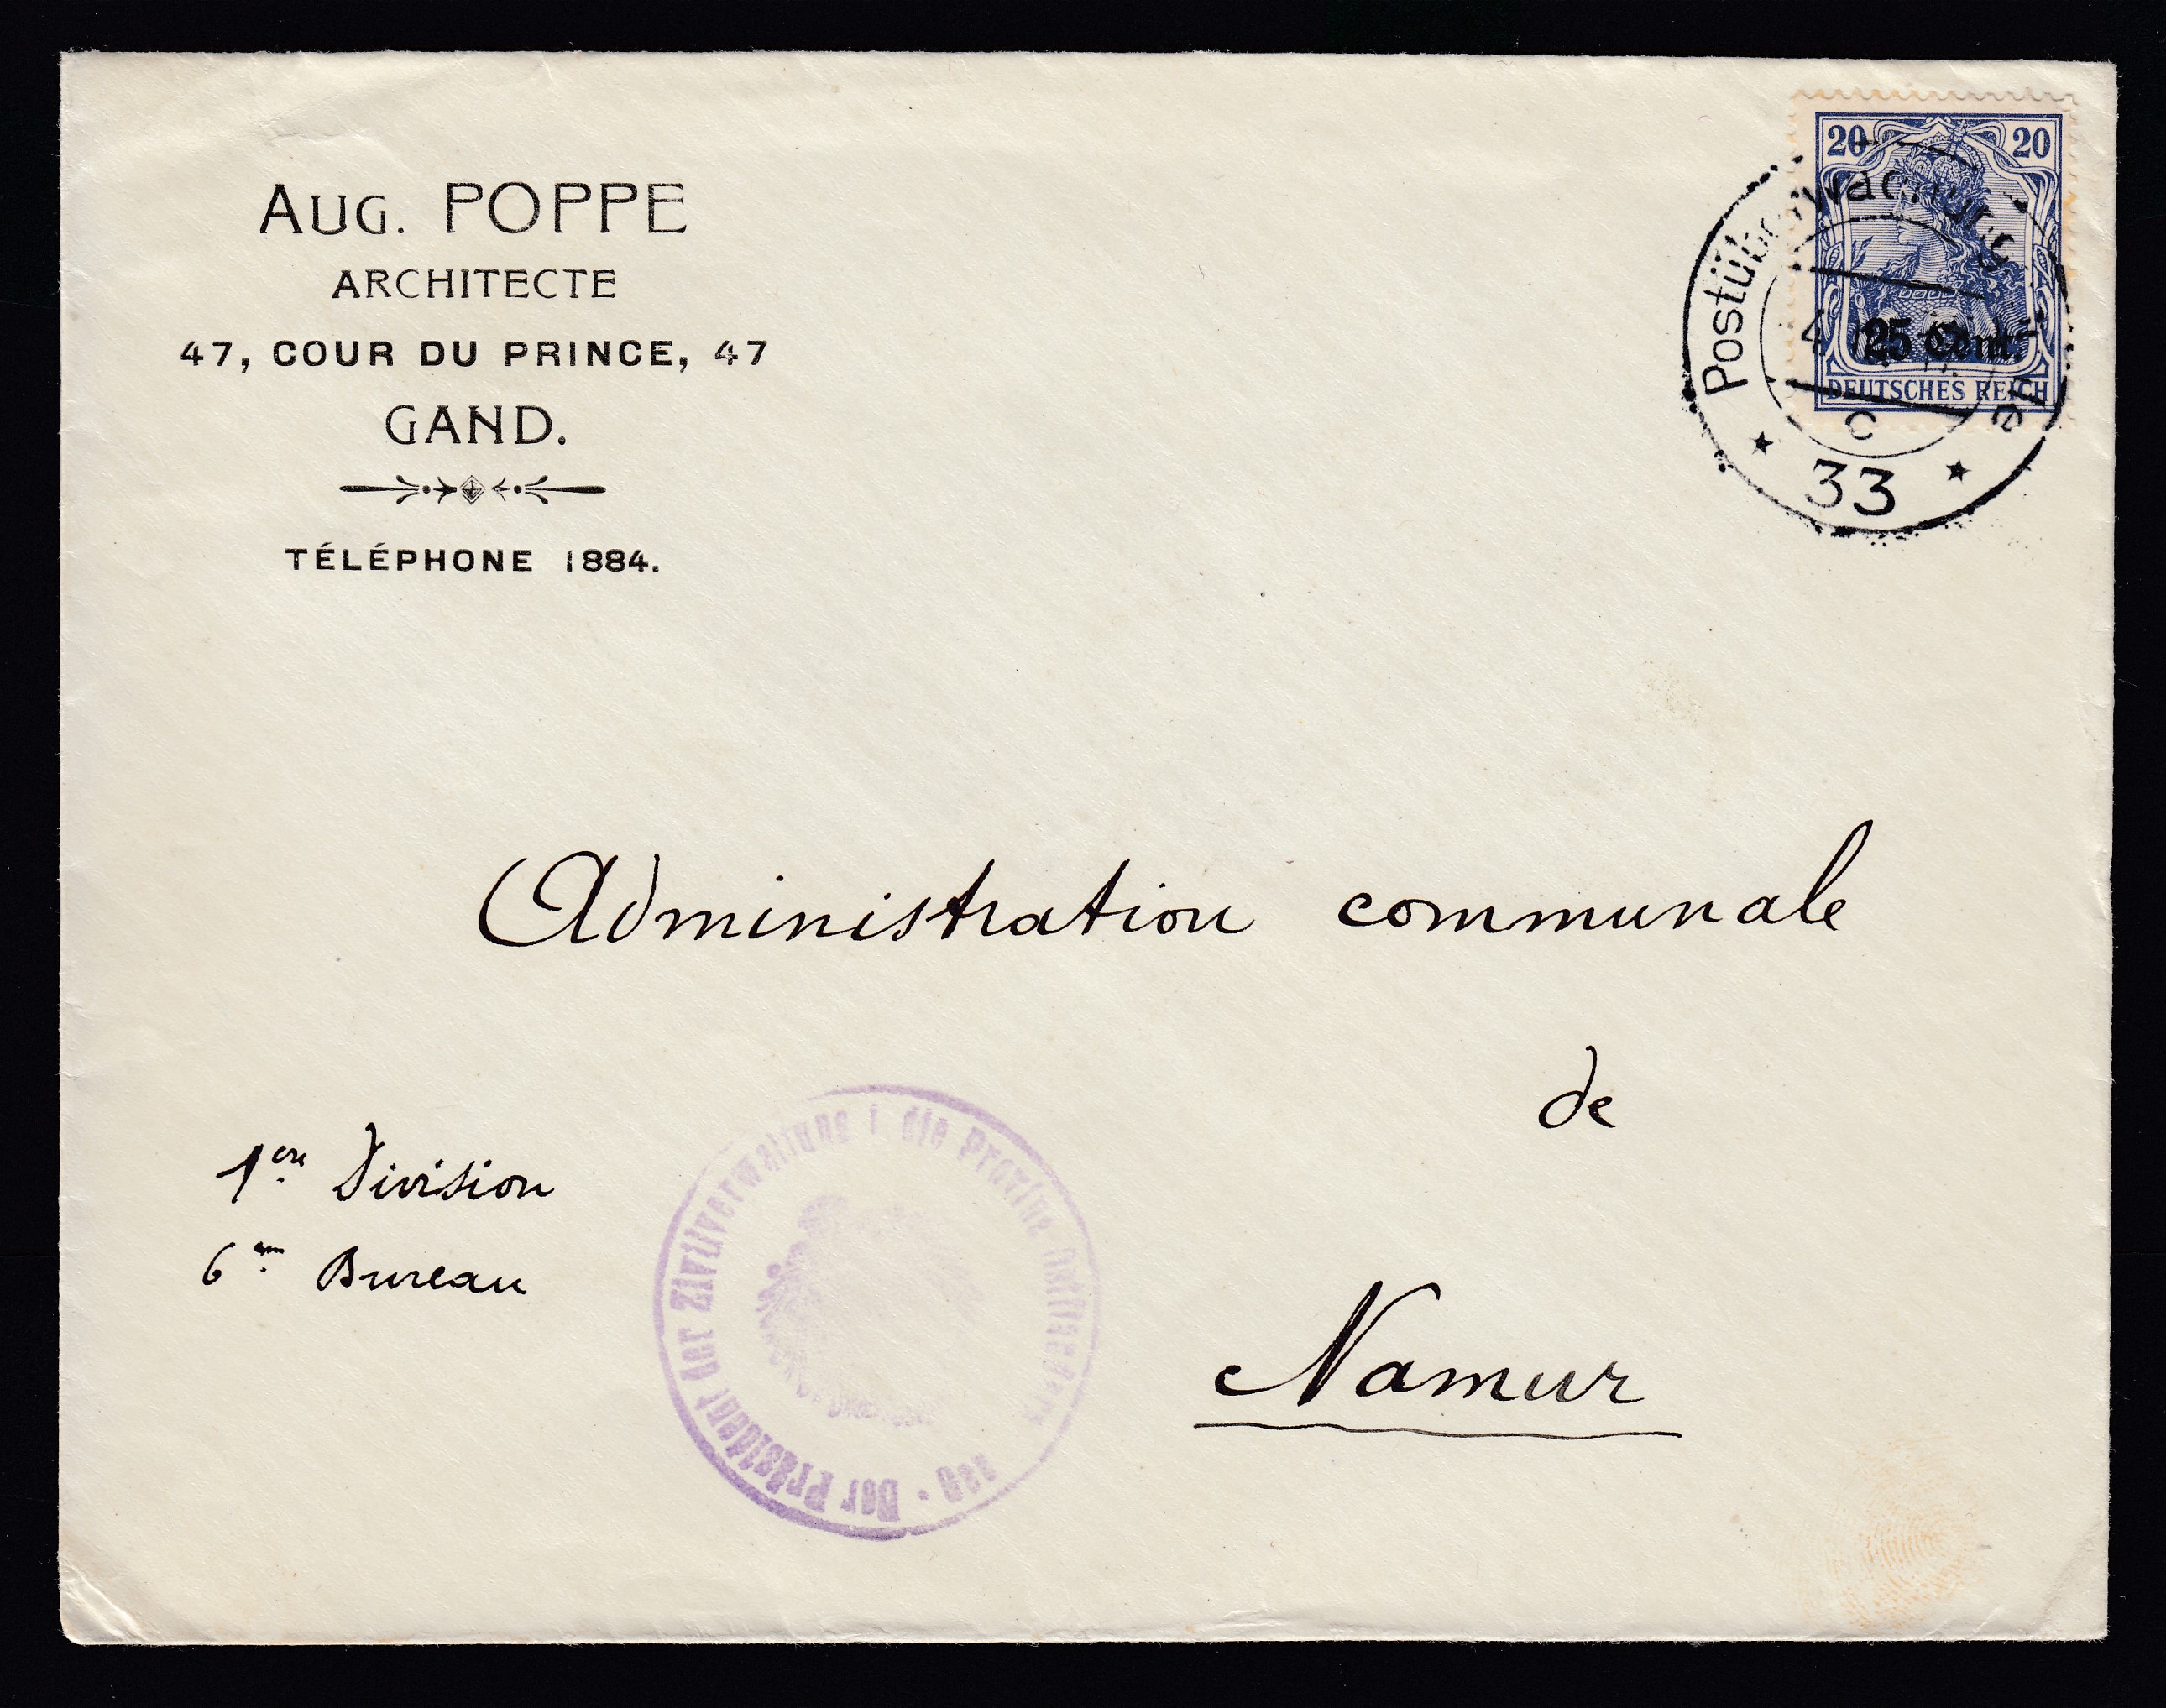 AUG. POPPE
ARCHITECTE
47, COUR DU PRINCE, 47
GAND.
TÉLÉPHONE 1884.
20 20
25 Cent.
DEUTSCHES REICH
Postüberwachung
c
* 33 *
Administration communale
de
Namur
1ère Division
6em Bureau
Der Präsident der Zivilverwaltung f die Provinz Ostflandern